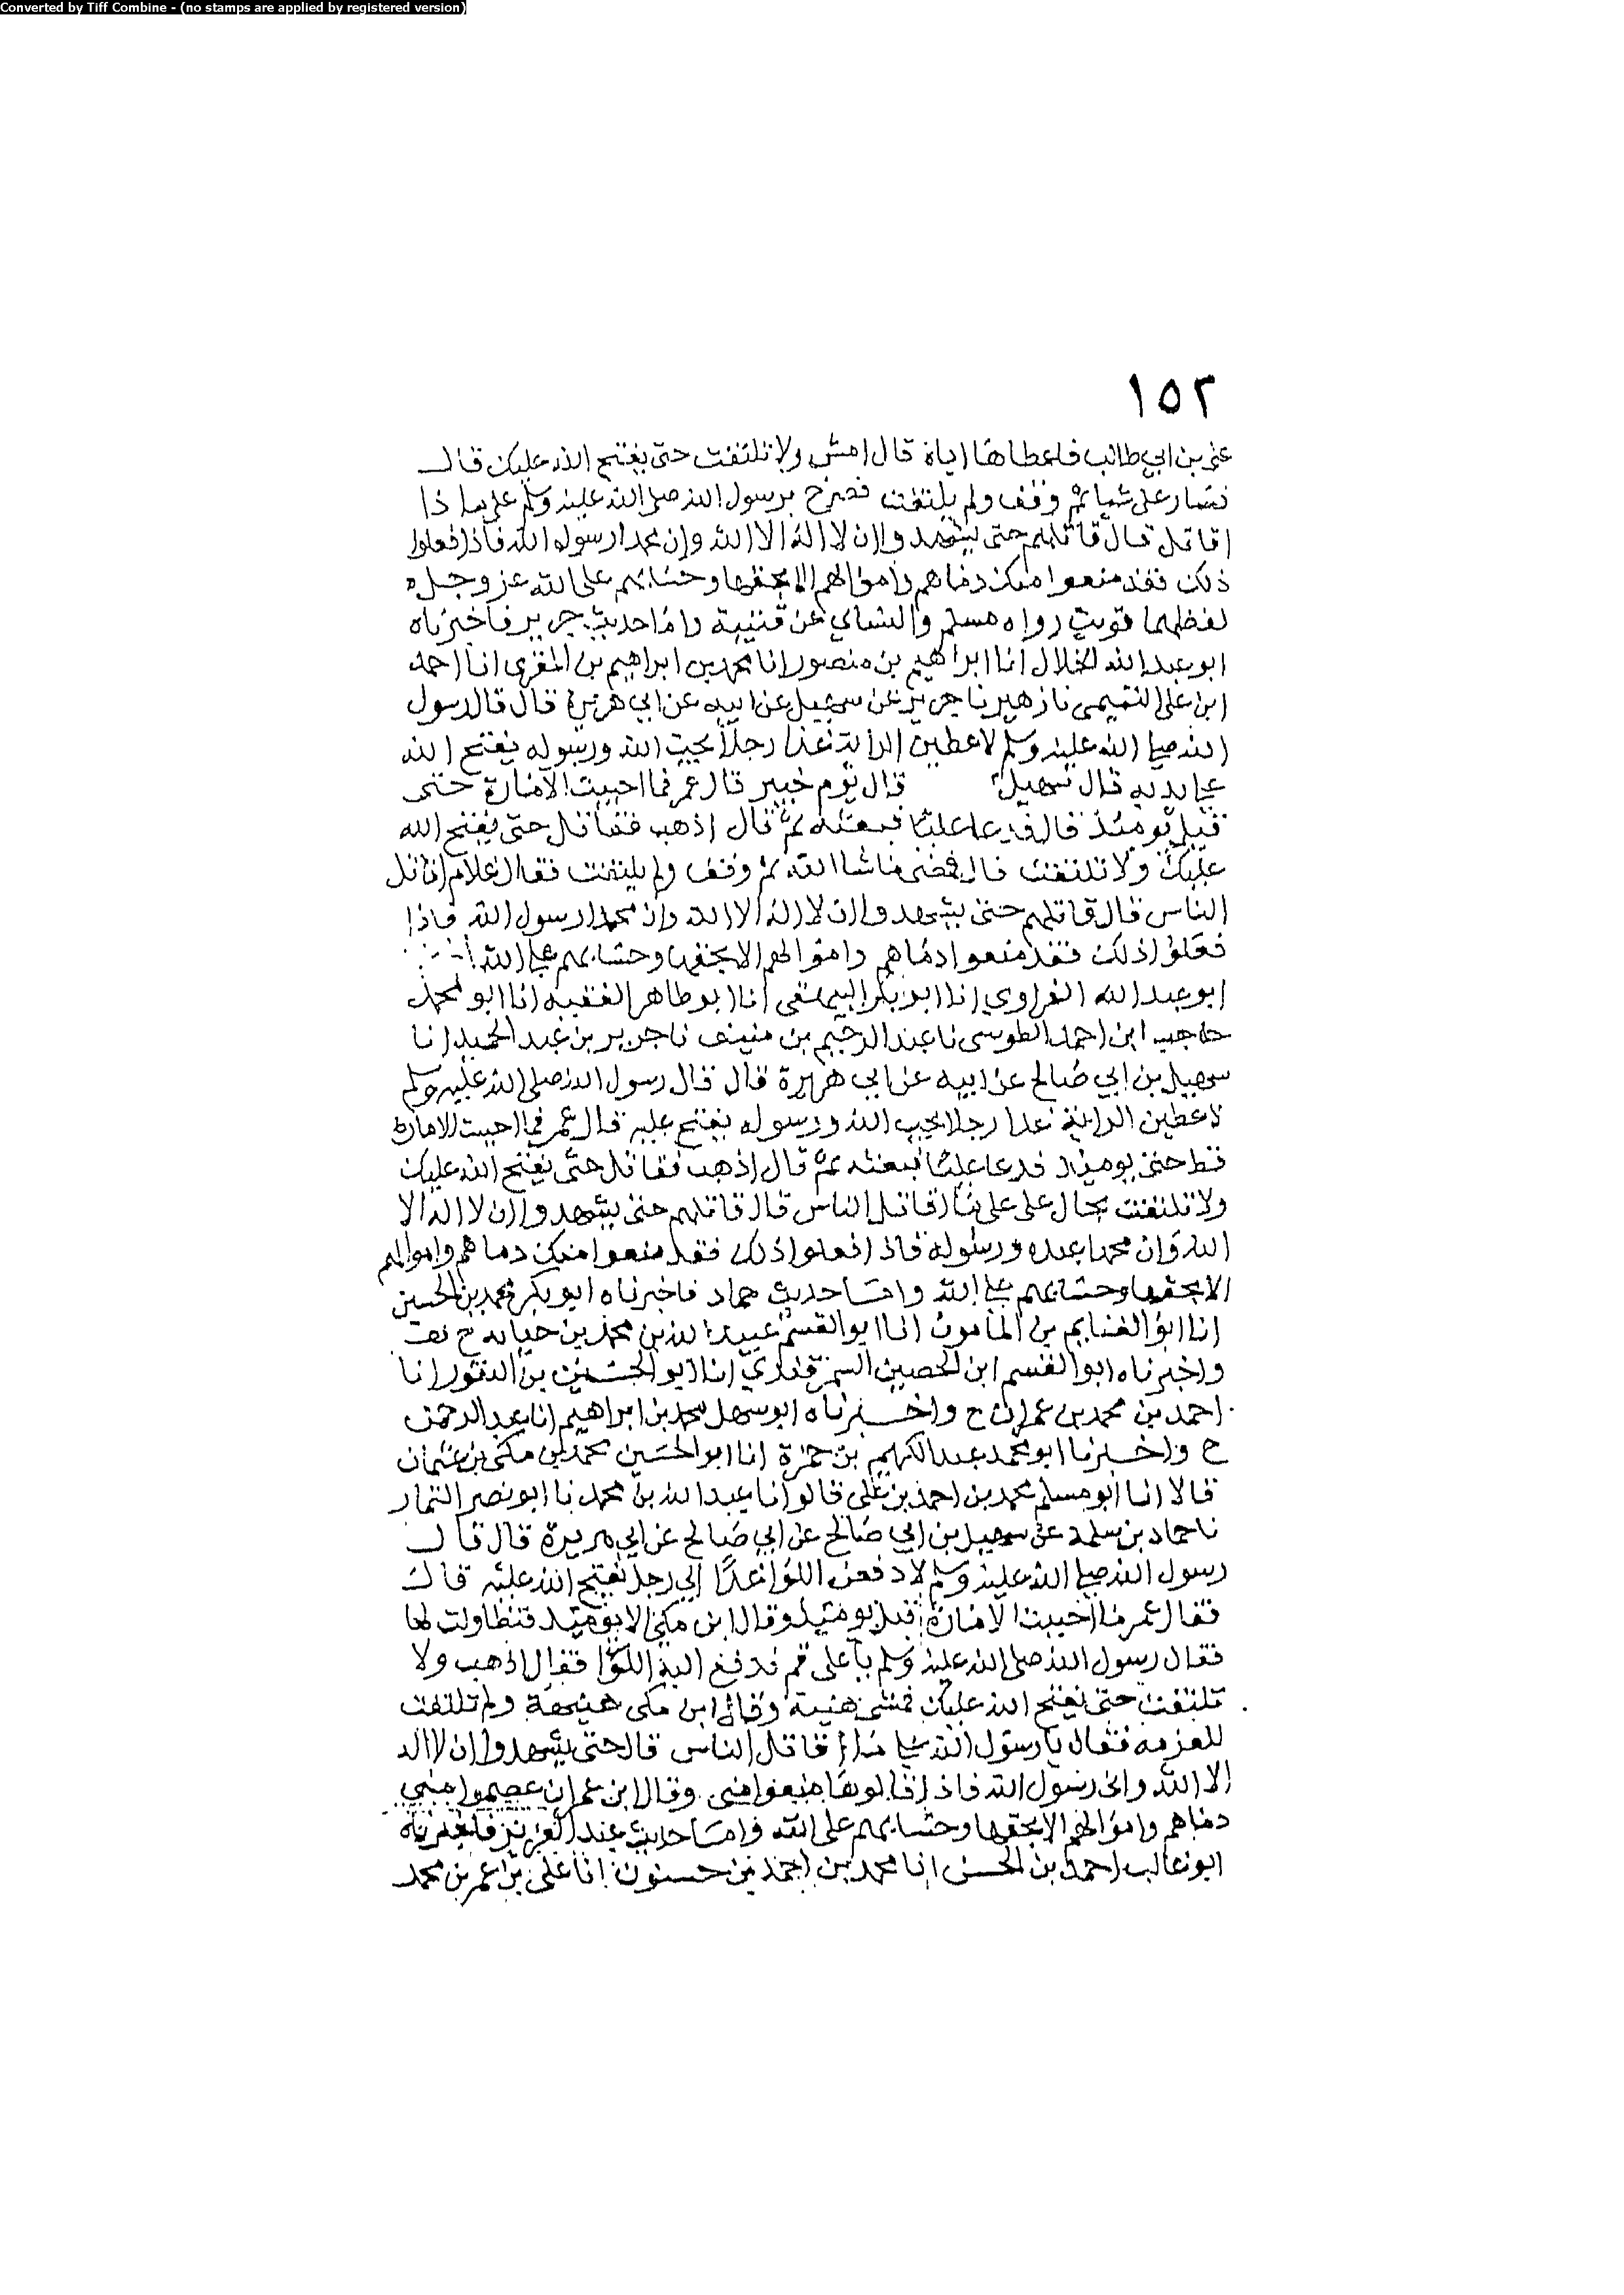 Converted by Tiff Combine - (no stamps are applied by registered version)
١٥٢
على بن ابي طالب فاعطاها اياه قال امش ولا تلتفت حتى يفتح الله عليك قال
فسار على شيا ثم وقف ولم يلتفت فصرخ برسول الله صلى الله عليه وسلم على ماذا
اقاتل قال قاتلهم حتى يشهدوا ان لا اله الا الله وان محمدا رسول الله فاذا فعلوا
ذلك فقد منعوا منك دماهم واموالهم الا بحقها وحسابهم على الله عز وجل
لفظهما قريب رواه مسلم والنساي عن قتيبة واما حديث جرير فاخبرناه
ابو عبد الله الخلال انا ابراهيم بن منصور انا محمد بن ابراهيم بن المقرى انا احمد
ابن على التميمى نا زهير نا جرير عن سهيل عن ابيه عن ابي هريرة قال قال رسول
الله صلى الله عليه وسلم لاعطين الراية غدا رجلا يحب الله ورسوله يفتح الله
على يديه قال سهيل قال يوم خيبر قال عمر فما احببت الامارة حتى
قبل يومئذ قال فدعا عليا فبعثه ثم قال اذهب فقاتل حتى يفتح الله
عليك ولا تلتفت قال فمضى ما شا الله ثم وقف ولم يلتفت فقال علام اقاتل
الناس قال قاتلهم حتى يشهدوا ان لا اله الا الله وان محمدا رسول الله فاذا
فعلوا ذلك فقد منعوا دماهم واموالهم الا بحقها وحسابهم على الله
ابو عبد الله الفراوي انا ابو بكر البيهقى انا ابو طاهر الفقيه انا ابو محمد
حاجب ابن احمد الطوسى نا عبد الرحيم بن منيب نا جرير بن عبد الحميد انا
سهيل بن ابي صالح عن ابيه عن ابي هريرة قال قال رسول الله صلى الله عليه وسلم
لاعطين الراية غدا رجلا يحب الله ورسوله يفتح عليه قال عمر فما احببت الامارة
قط حتى يومئذ فدعا عليا فبعثه ثم قال اذهب فقاتل حتى يفتح الله عليك
ولا تلتفت قال على على ما اقاتل الناس قال قاتلهم حتى يشهدوا ان لا اله الا
الله وان محمدا عبده ورسوله فاذا فعلوا ذلك فقد منعوا منك دماهم واموالهم
الا بحقها وحسابهم على الله واما حديث حماد فاخبرناه ابو بكر محمد بن الحسين
انا ابو الغنايم بن المامون انا ابو القسم عبيد الله بن محمد بن حبابه ح
واخبرناه ابو القسم ابن الحصين السمرقندي انا ابو الحسين بن النقور انا
احمد بن محمد بن عمران ح واخبرناه ابو سهل محمد بن ابراهيم انا عبد الرحمن
ح واخبرنا ابو محمد عبد الكريم بن حمزة انا ابو الحسين محمد بن مكى بن عثمان
قالا انا ابو مسلم محمد بن احمد بن على قالوا نا عبد الله بن محمد نا ابو نصر التمار
نا حماد بن سلمه عن سهيل بن ابي صالح عن ابي صالح عن ابي هريرة قال قال
رسول الله صلى الله عليه وسلم لادفعن اللوا غدا الى رجل يفتح الله عليه قال
فقال عمر ما احببت الامارة قبل يومئذ وقال ابن مكى الا يومئذ فتطاولت لها
فقال رسول الله صلى الله عليه وسلم يا على قم فدفع اليه اللوا فقال اذهب ولا
تلتفت حتى يفتح الله عليك فمشى هنية وقال ابن مكى هنيهة ولم تلتفت
للعزمه فقال يا رسول الله على ما اقاتل الناس قال حتى يشهدوا ان لا اله
الا الله وانى رسول الله فاذا قالوها منعوا منى وقال ابن عمران عصموا منى
دماهم واموالهم الا بحقها وحسابهم على الله واما حديث عبد العزيز فاخبرناه
ابو غالب احمد بن الحسن انا محمد بن احمد بن حسنون انا على بن عمر بن محمد